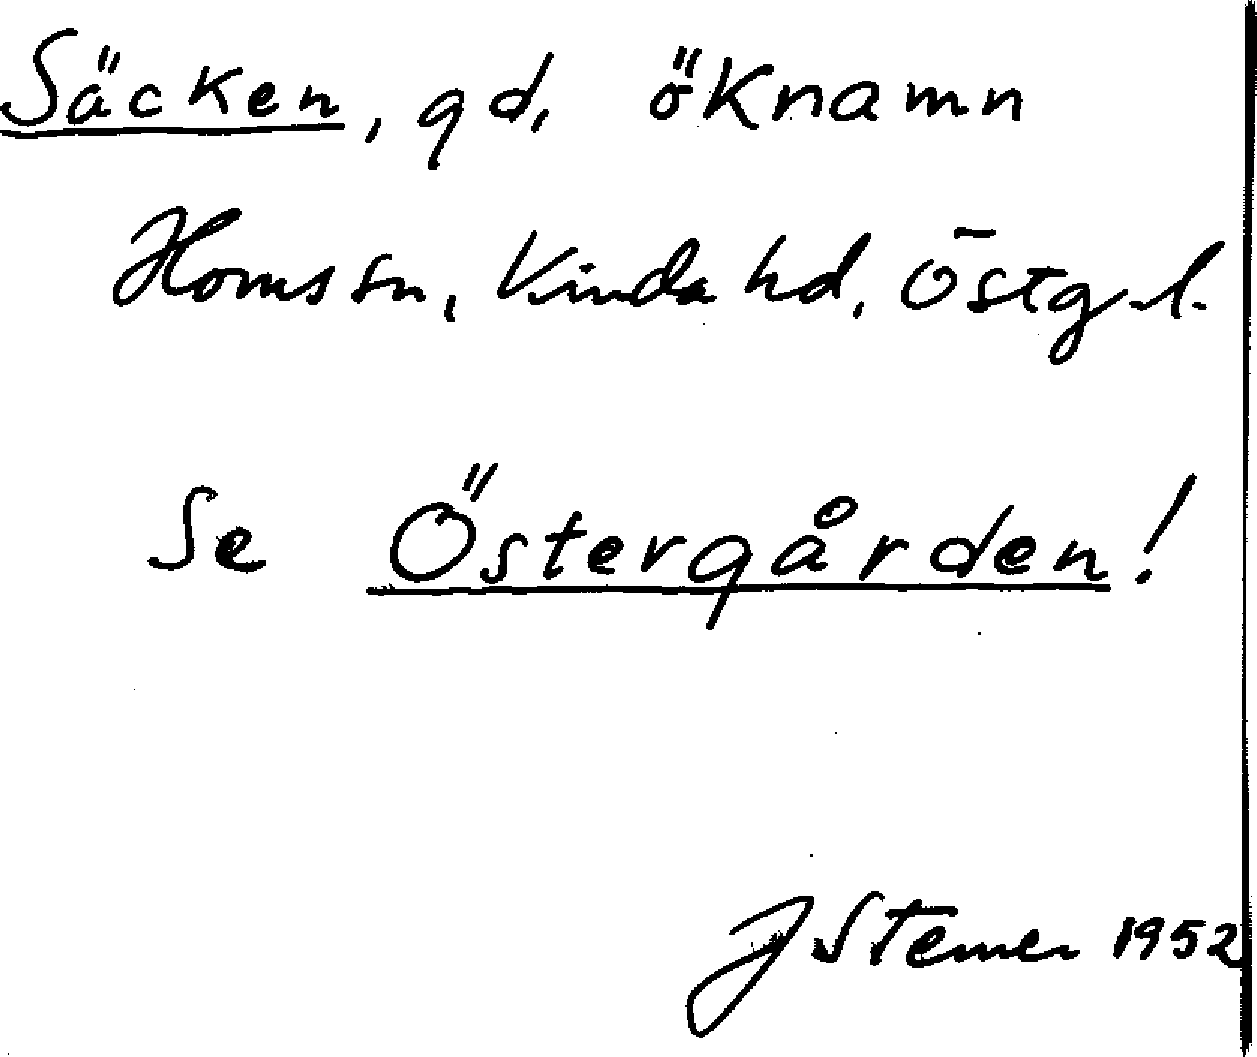 Säcken, gd, öknamn
Horns sn, Kinda hd, Östg.l.
Se Östergården!
J Stemer 1952